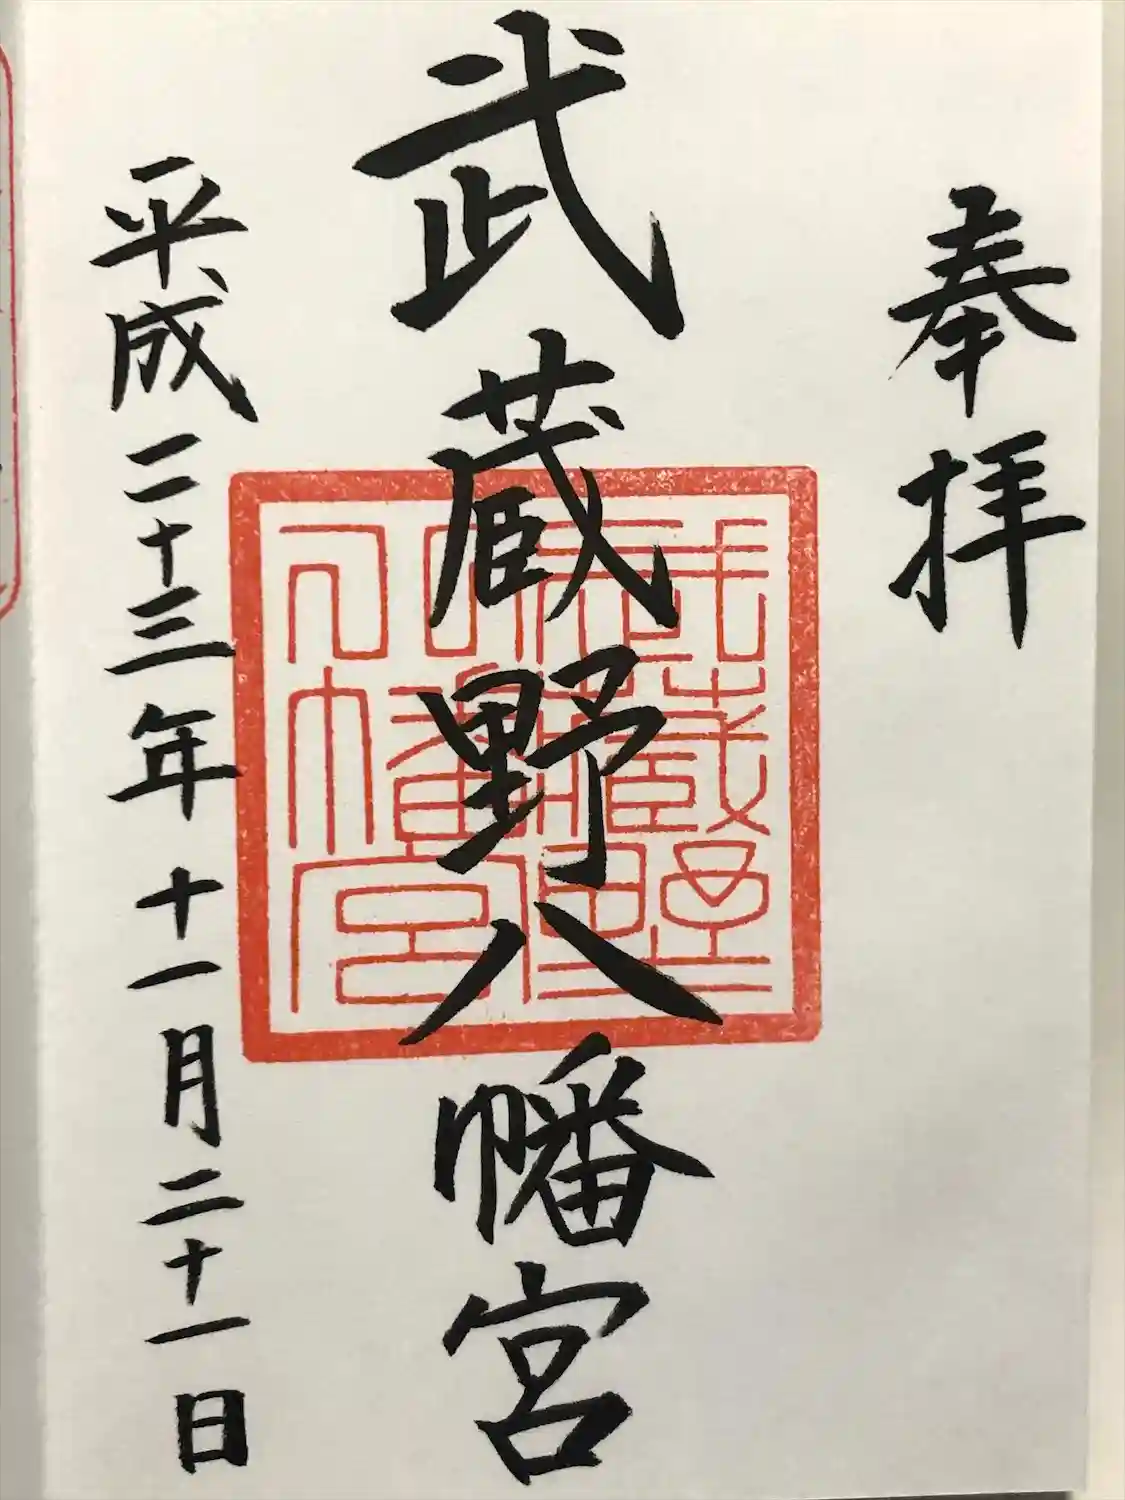 奉拝
武蔵野八幡宮
武蔵野坐
八幡宮
平成二十三年十一月二十一日